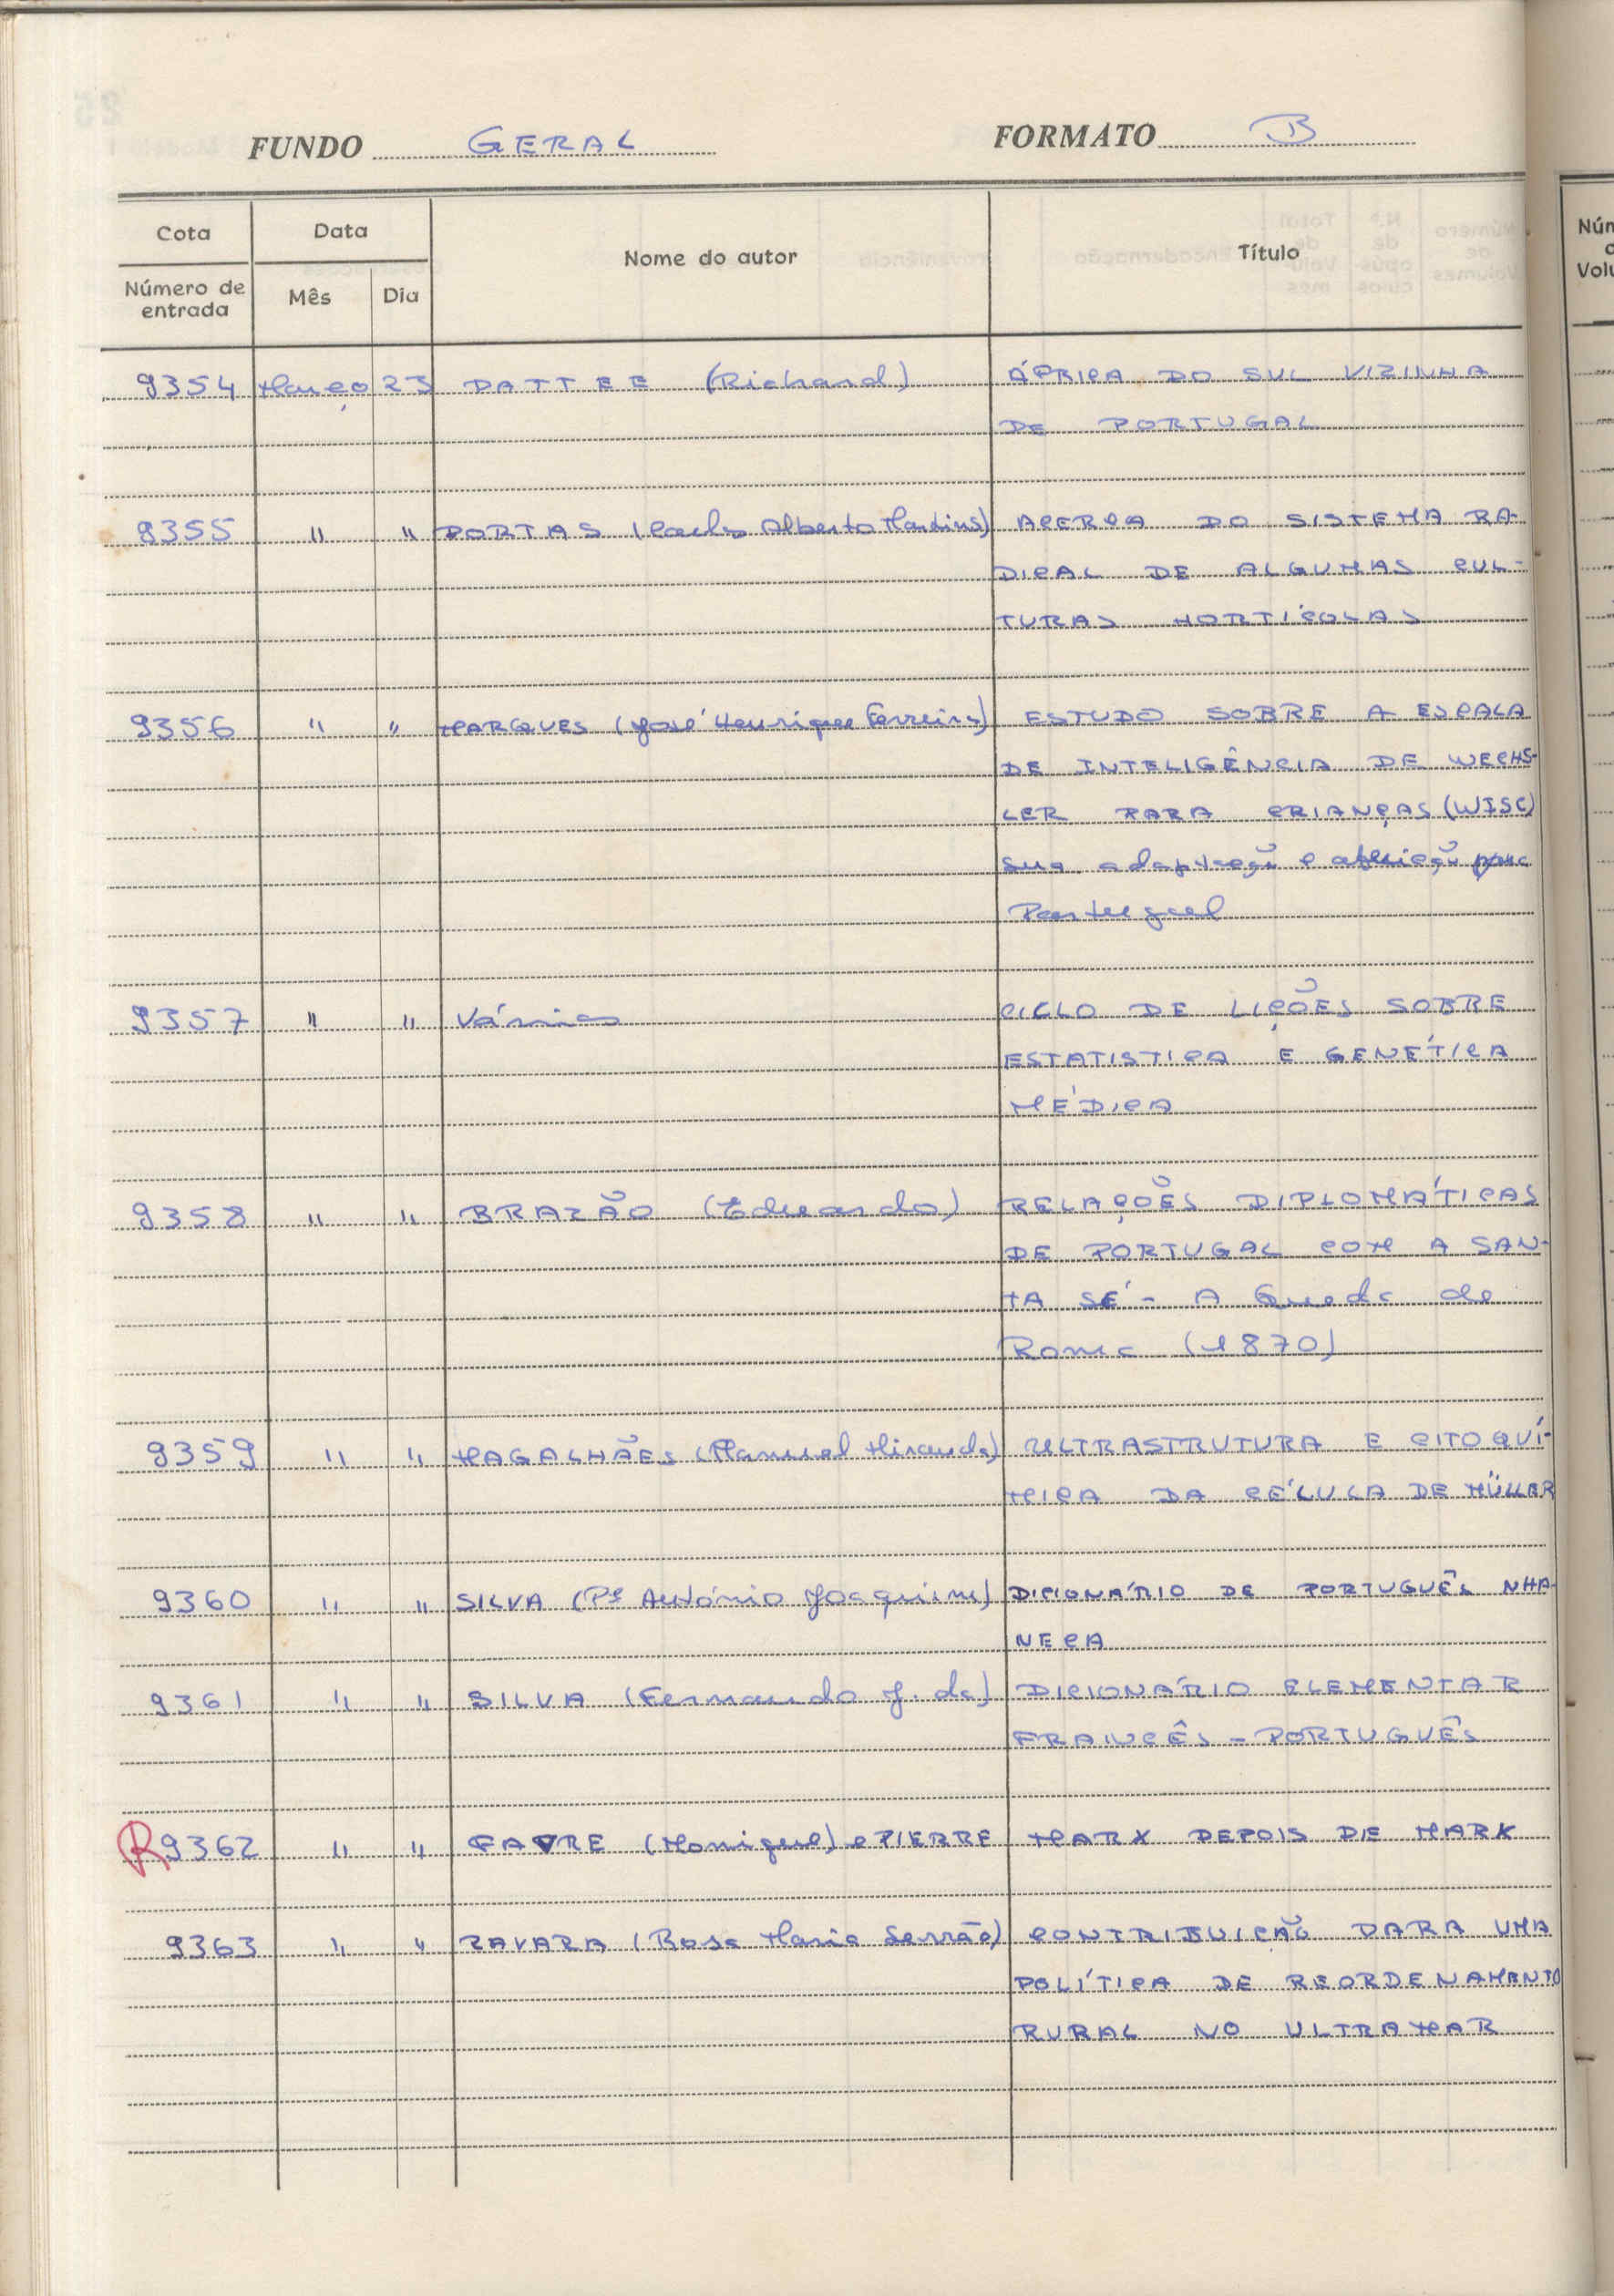 FUNDO GERAL FORMATO B
Cota Data Nome do autor Título
Número de entrada Mês Dia
9354 Março 23 PATTEE (Richard) ÁFRICA DO SUL VIZINHA
DE PORTUGAL
9355 " " PORTAS (Carlos Alberto Martins) ACERCA DO SISTEMA RA-
DICAL DE ALGUMAS CUL-
TURAS HORTÍCOLAS
9356 " " MARQUES (José Henrique Ferreira) ESTUDO SOBRE A ESCALA
DE INTELIGÊNCIA DE WECHS-
LER PARA CRIANÇAS (WISC)
Sua adaptação e aferição para
Portugal
9357 " " Vários CICLO DE LIÇÕES SOBRE
ESTATISTICA E GENÉTICA
MÉDICA
9358 " " BRAZÃO (Eduardo) RELAÇÕES DIPLOMÁTICAS
DE PORTUGAL COM A SAN-
TA SÉ - A Queda de
Roma (1870)
9359 " " MAGALHÃES (Manuel Miranda) ULTRASTRUTURA E CITOQUÍ-
MICA DA CÉLULA DE MÜLLER
9360 " " SILVA (Pe António Joaquim) DICIONÁRIO DE PORTUGUÊS NHA-
NECA
9361 " " SILVA (Fernando J. da) DICIONÁRIO ELEMENTAR
FRANCÊS - PORTUGUÊS
R 9362 " " FAVRE (Monique) e PIERRE MARX DEPOIS DE MARX
9363 " " RAVARA (Rosa Maria Serrão) CONTRIBUIÇÃO PARA UMA
POLÍTICA DE REORDENAMENTO
RURAL NO ULTRAMAR